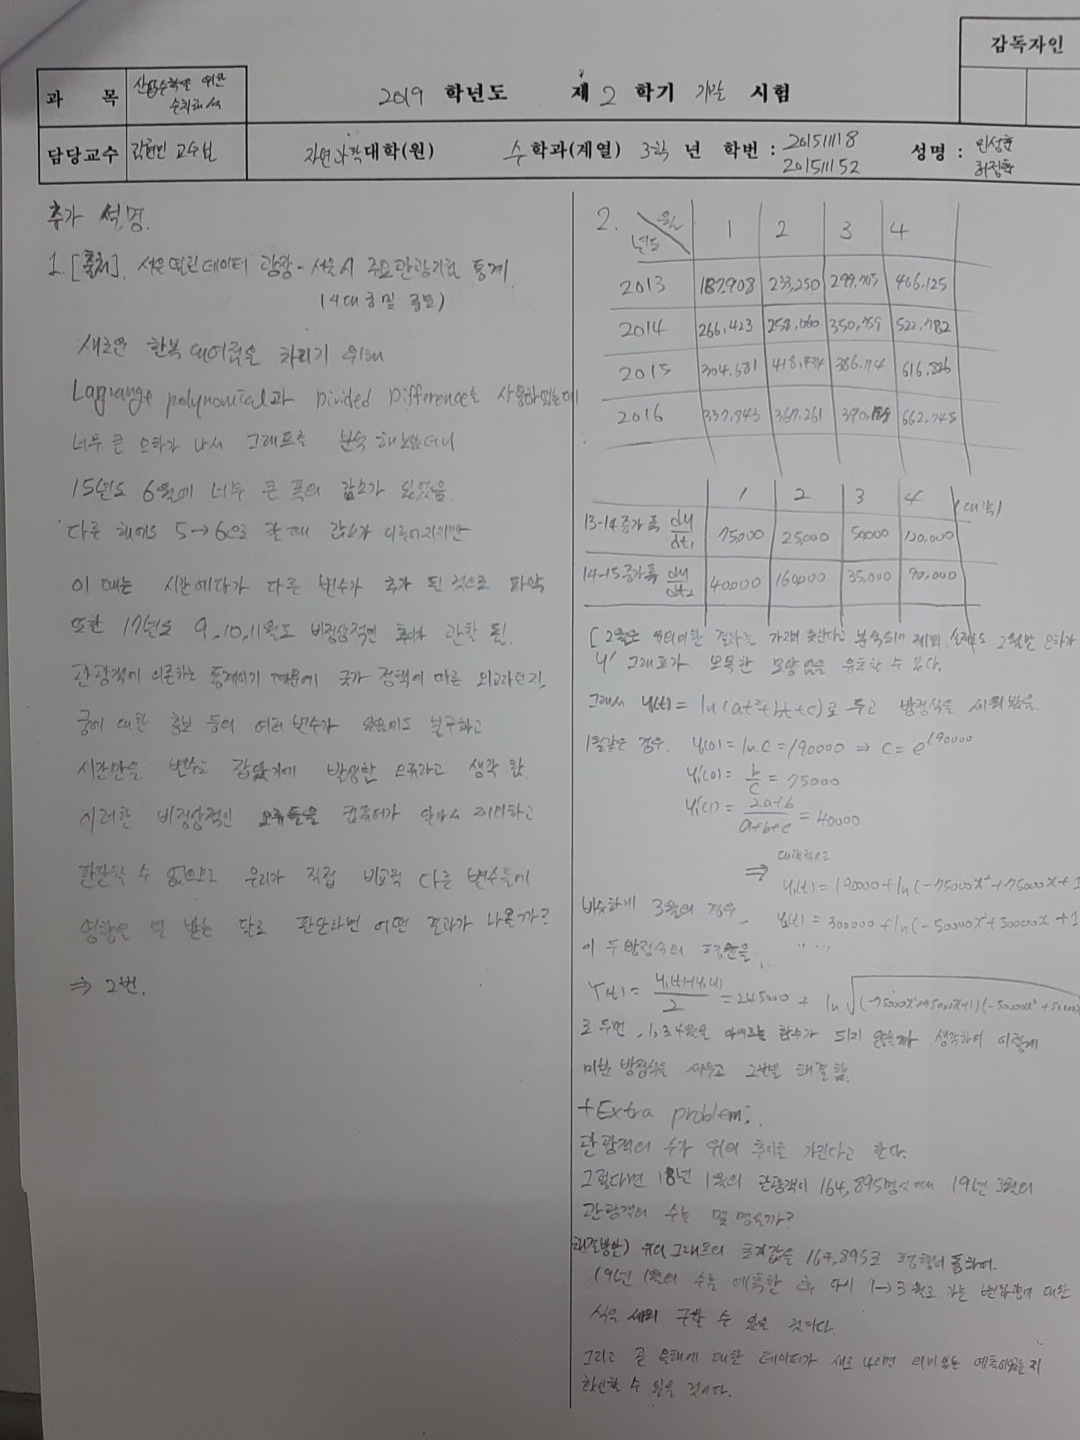 감독자인
과 목 산업수학을 위한
수치해석
2019 학년도 제 2 학기 기말 시험
담당교수 교수님
자연과학대학(원) 수 학과(계열) 3학 년 학번 : 20151118
20151152
성명 :
추가 설명.
1. [출처]. 서울 열린데이터 광장 - 서울시 주요관광지점 통계.
(4대 궁 및 종묘)
새로운 한복 대여점을 차리기 위해
Lagrange polynomital과 Divided Difference를 사용하였는데
너무 큰 오차가 나서 그래프를 분석 해보았더니
15년도 6월에 너무 큰 폭의 감소가 있었음.
다른 해에도 5→6으로 갈 때 감소가 이루어지지만
이 때는 시간에다가 다른 변수가 추가 된 것으로 파악
또한 17년도 9, 10, 11월도 비정상적인 추이가 관찰 됨.
관광객에 의존하는 통계이기 때문에 국가 정책에 따른 외교라던지,
궁에 대한 홍보 등의 여러 변수가 있음에도 불구하고
시간만을 변수로 잡았기에 발생한 오류라고 생각 함.
이러한 비정상적인 오류들을 컴퓨터가 알아서 제외하고
판단할 수 없으므로 우리가 직접 비교적 다른 변수들에
영향을 덜 받는 달로 판단하면 어떤 결과가 나올까?
⇒ 2번.
2. 월 년도 1 2 3 4
2013 187,908 233,250 299,705 406,125
2014 266,423 258,060 350,759 522,782
2015 304,681 418,434 386,114 616,826
2016 337,843 367,261 390, 662,745
1 2 3 4 (대략)
13-14 증가폭 dy/dt₁ 75,000 25,000 50,000 120,000
14-15 증가폭 dy/dt₂ 40,000 160,000 35,000 90,000
[2월은 유의미한 결과를 가져오지 못한다고 분석되어 제외. 2월만 오차가
y' 그래프가 볼록한 모양임을 유추할 수 있다.
그래서 y(t) = ln(at²+bt+c)로 두고 방정식을 세워 보았음.
1월같은 경우. y₁(0) = ln c = 190000 ⇒ c = e^190000
y₁'(0) = b/c = 75000
y₁'(1) = 2a+b/a+b+c = 40000
대략적으로
⇒ y₁(t) = 190000 + ln(-75000x²+75000x+1
비슷하게 3월의 경우, y₃(t) = 300000 + ln(-50000x²+50000x+1
이 두방정식의 평균을 " ...
Y(t) = /2 = 245000 + ln√(-75000x²+75000x+1)(-50000x²+50000x
로 두면, 1, 3, 4월을 아우르는 함수가 되지 않을까 생각하여 이렇게
미분 방정식을 세우고 2번을 해결 함.
+Extra problem:.
관광객의 수가 위의 추이를 가진다고 한다.
그렇다면 18년 1월의 관광객이 164,895명일 때 19년 3월의
관광객의 수는 몇 명일까?
해결방안) 위의 그래프의 초기값을 164,895로 평행이동하여.
19년 1월의 수를 예측한 후 다시 1→3월로 가는 변화량에 대한
식을 세워 구할 수 있을 것이다.
그리고 곧 올해에 대한 데이터가 새로 나오면 의미있는 예측이었는지
확인할 수 있을 것이다.